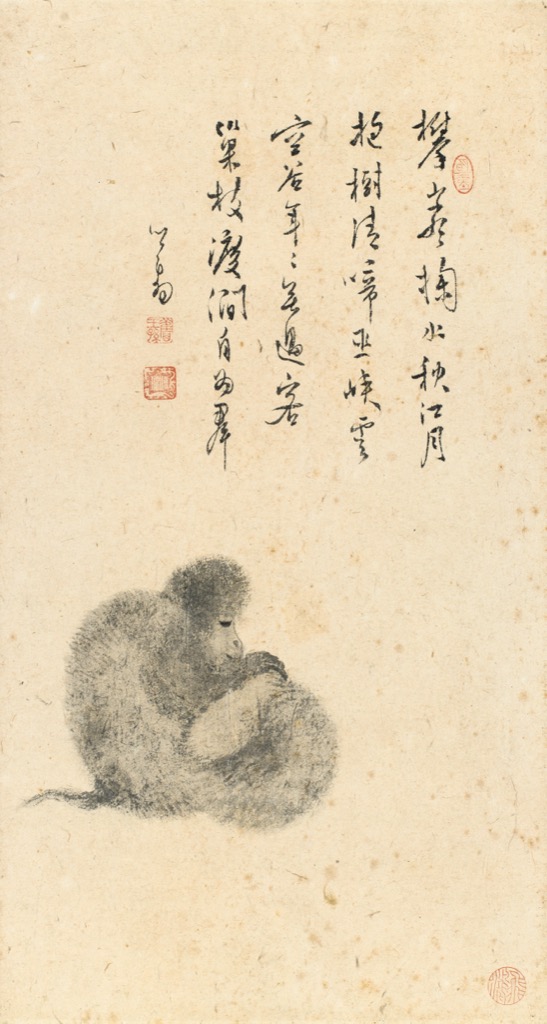 攀掬水秋江月
抱樹清啼巫峽雲
空谷年〻無過客
巢枝渡澗自為羣
心畬